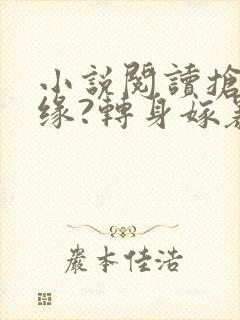 小說閱讀搶
緣?轉身嫁
嚴本佳浩